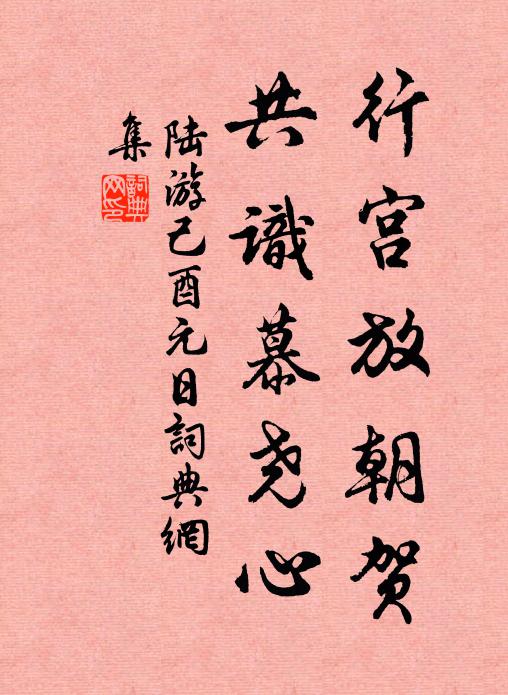 行宫放朝贺
共識慕尧心
陆游己酉元日詞典網
集
詞典网印